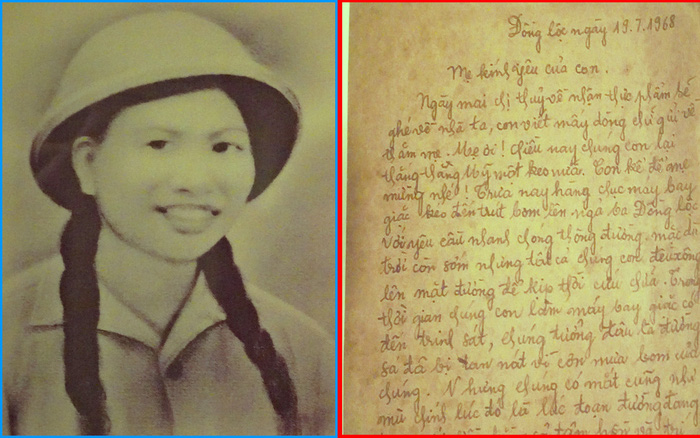 Đồng Lộc ngày 19.7.1968
Mẹ kính yêu của con.
Ngày mai chị Thuỷ về nhận thực phẩm sẽ
ghé về nhà ta, con viết mấy dòng chữ gửi về
thăm mẹ. Mẹ ơi! Chiều nay chúng con lại
thắng thằng Mỹ một keo nữa. Con kể để mẹ
mừng nhé! Trưa nay hàng chục máy bay
giặc kéo đến trút bom lên ngã ba Đồng Lộc
với yêu cầu nhanh chóng thông đường mặc dù
trời còn sớm nhưng tất cả chúng con đều xông
lên mặt đường để kịp thời cứu chữa. Trong
thời gian chúng con làm máy bay giặc có
đến trinh sát, chúng tưởng đâu là đường
sá đã bị tan nát vì cơn mưa bom của
chúng. Nhưng chúng có mắt cũng như
mù chính lúc đó là lúc đoạn đường đang